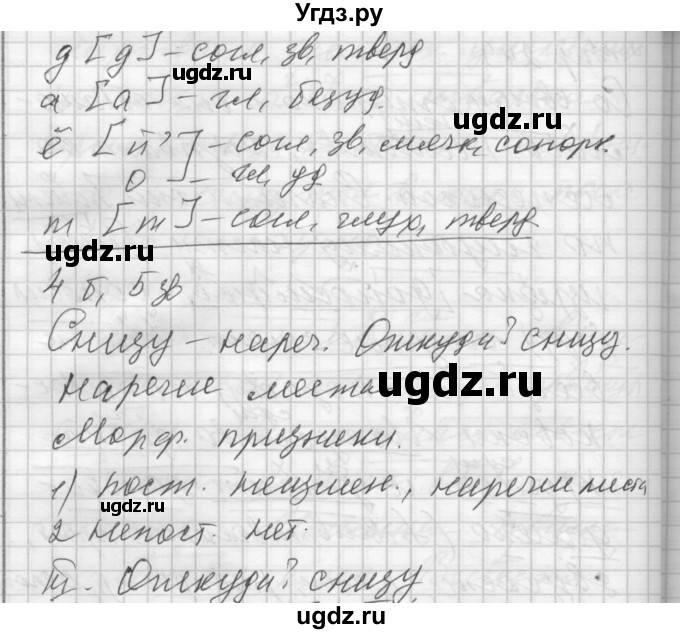 Угдз.ру
д [д] – согл, зв, тверд
а [а] – гл, безуд.
ё [й'] – согл, зв, мягк, сонорн.
о] – гл, уд
т [т] – согл, глух, тверд
4 б, 5 зв
Снизу – нареч. Откуда? снизу.
наречие места
Морф. признаки.
1) пост. неизмен., наречие места
2 непост. нет.
III. Откуда? снизу
ugdz.ru
ugdz.ru
ugdz.ru
ugdz.ru
ugdz.ru
ugdz.ru
ugdz.ru
ugdz.ru
ugdz.ru